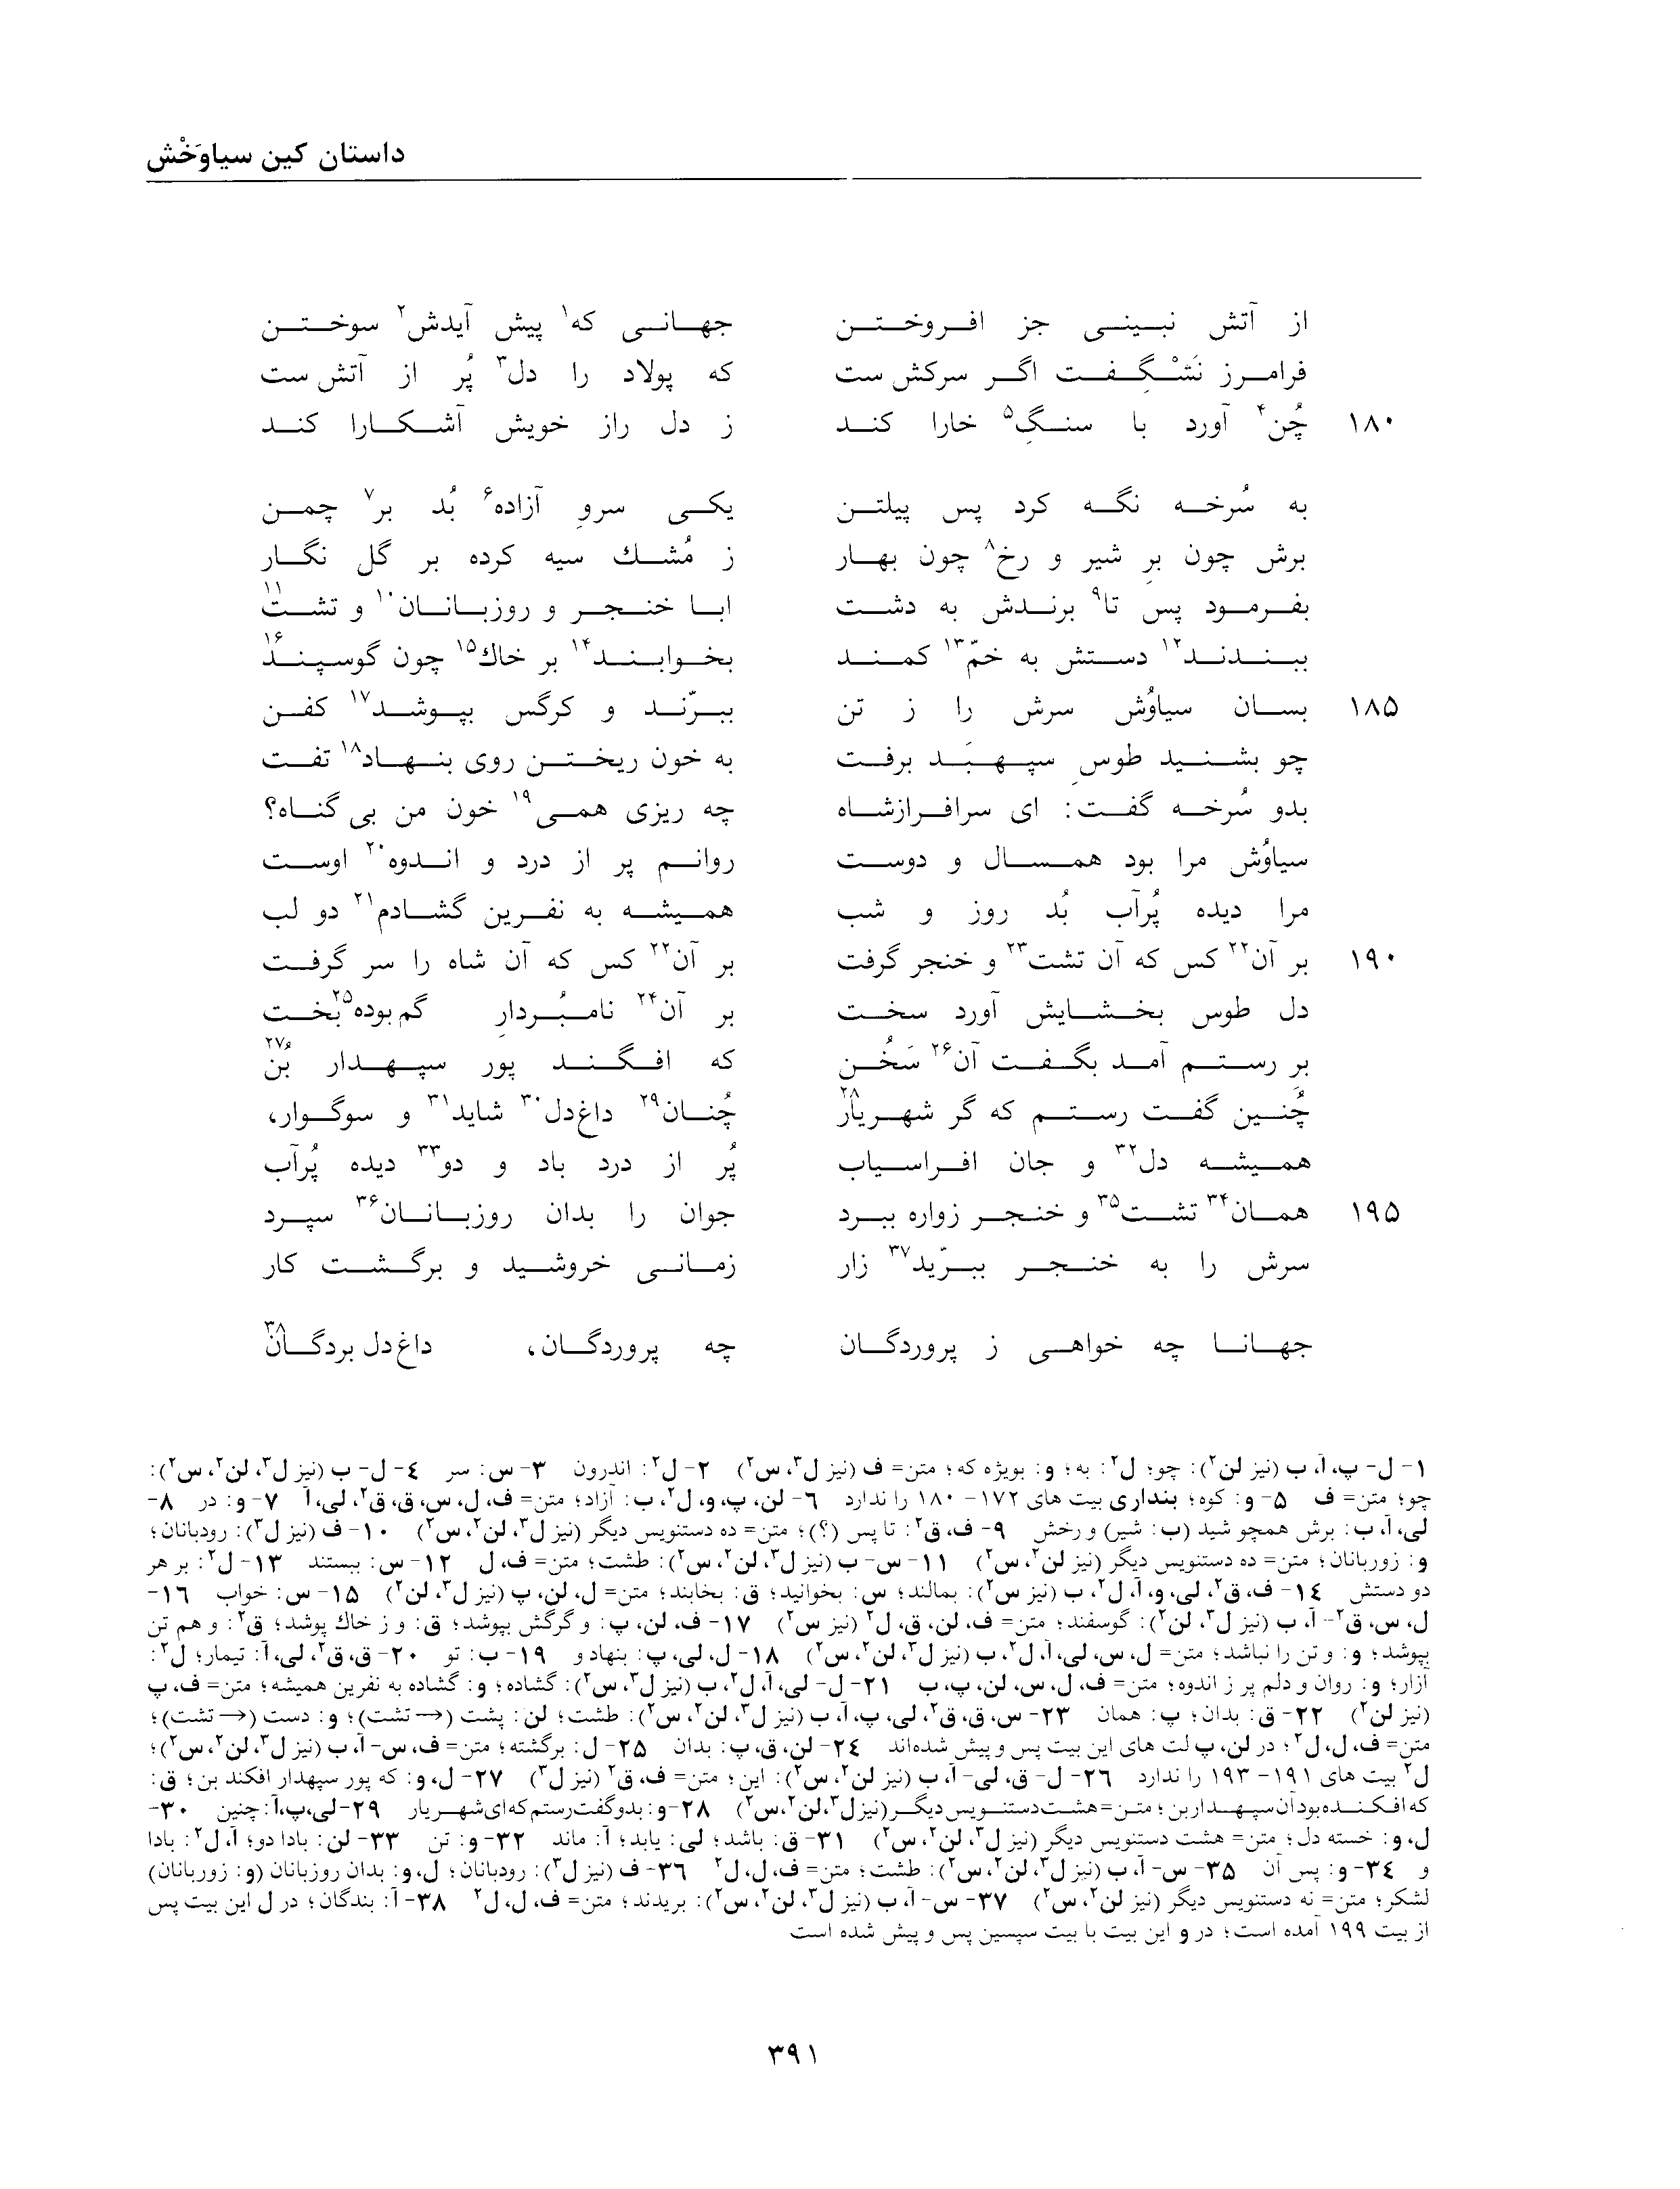 داستان کین سیاوَخْش
از آتش نبینی جز افروختن جهانی که۱ پیش آیدش۲ سوختن
فرامرز نَشْگِفت اگر سرکش ست که پولاد را دل۳ پُر از آتش ست
۱۸۰ چُن۴ آورد با سنگِ۵ خارا کند ز دل راز خویش آشکارا کند
به سُرخه نگه کرد پس پیلتن یکی سروِ آزاده۶ بُد بر۷ چمن
برش چون برِ شیر و رخ۸ چون بهار ز مُشك سیه کرده بر گل نگار
بفرمود پس تا۹ برندش به دشت ابا خنجر و روزبانان۱۰ و تشت۱۱
ببندند۱۲ دستش به خمّ۱۳ کمند بخوابند۱۴ بر خاك۱۵ چون گوسپند۱۶
۱۸۵ بسان سیاوُش سرش را ز تن ببرّند و کرگس بپوشد۱۷ کفن
چو بشنید طوسِ سپهبَد برفت به خون ریختن روی بنهاد۱۸ تفت
بدو سُرخه گفت: ای سرافرازشاه چه ریزی همی۱۹ خون من بی گناه؟
سیاوُش مرا بود همسال و دوست روانم پر از درد و اندوه۲۰ اوست
مرا دیده پُرآب بُد روز و شب همیشه به نفرین گشادم۲۱ دو لب
۱۹۰ بر آن۲۲ کس که آن تشت۲۳ و خنجر گرفت بر آن۲۲ کس که آن شاه را سر گرفت
دل طوس بخشایش آورد سخت بر آن۲۴ نامبُردارِ گم بوده۲۵ بخت
بر رستم آمد بگفت آن۲۶ سَخُن که افگند پور سپهدار بُن۲۷
چُنین گفت رستم که گر شهریار۲۸ چُنان۲۹ داغ دل۳۰ شاید۳۱ و سوگوار،
همیشه دل۳۲ و جان افراسیاب پُر از درد باد و دو۳۳ دیده پُرآب
۱۹۵ همان۳۴ تشت۳۵ و خنجر زواره ببرد جوان را بدان روزبانان۳۶ سپرد
سرش را به خنجر ببرّید۳۷ زار زمانی خروشید و برگشت کار
جهانا چه خواهی ز پروردگان چه پروردگان، داغ دل بردگان۳۸
۱- ل- پ، آ، ب (نیز لن۲): چو؛ ل۲: به؛ و: بویژه که؛ متن= ف (نیز ل۳، س۲) ۲- ل۲: اندرون ۳- س: سر ۴- ل- ب (نیز ل۳، لن۲، س۲):
چو؛ متن= ف ۵- و: کوه؛ بنداری بیت های ۱۷۲- ۱۸۰ را ندارد ۶- لن، پ، و، ل۲، ب: آزاد؛ متن= ف، ل، س، ق، ق۲، لی، آ ۷- و: در ۸-
لی، آ، ب: برش همچو شید (ب: شیر) و رخش ۹- ف، ق۲: تا پس (؟)؛ متن= ده دستنویس دیگر (نیز ل۳، لن۲، س۲) ۱۰- ف (نیز ل۳): رودبانان؛
و: زوربانان؛ متن= ده دستنویس دیگر (نیز لن۲، س۲) ۱۱- س- ب (نیز ل۳، لن۲، س۲): طشت؛ متن= ف، ل ۱۲- س: ببستند ۱۳- ل۲: بر هر
دو دستش ۱۴- ف، ق۲، لی، و، آ، ل۲، ب (نیز س۲): بمالند؛ س: بخوانید؛ ق: بخابند؛ متن= ل، لن، پ (نیز ل۳، لن۲) ۱۵- س: خواب ۱۶-
ل، س، ق۲- آ، ب (نیز ل۳، لن۲): گوسفند؛ متن= ف، لن، ق، ل۲ (نیز س۲) ۱۷- ف، لن، پ: و گرگش بپوشد؛ ق: و ز خاك پوشد؛ ق۲: و هم تن
بپوشد؛ و: و تن را نباشد؛ متن= ل، س، لی، آ، ل۲، ب (نیز ل۳، لن۲، س۲) ۱۸- ل، لی، پ: بنهاد و ۱۹- ب: تو ۲۰- ق، ق۲، لی، آ: تیمار؛ ل۲:
آزار؛ و: روان و دلم پر ز اندوه؛ متن= ف، ل، س، لن، پ، ب ۲۱- ل- لی، آ، ل۲، ب (نیز ل۳، س۲): گشاده؛ و: گشاده به نفرین همیشه؛ متن= ف، پ
(نیز لن۲) ۲۲- ق: بدان؛ پ: همان ۲۳- س، ق، ق۲، لی، پ، آ، ب (نیز ل۳، لن۲، س۲): طشت؛ لن: پشت (←تشت)؛ و: دست (←تشت)؛
متن= ف، ل، ل۲؛ در لن، پ لت های این بیت پس و پیش شده‌اند ۲۴- لن، ق، پ: بدان ۲۵- ل: برگشته؛ متن= ف، س- آ، ب (نیز ل۳، لن۲، س۲)؛
ل۲ بیت های ۱۹۱- ۱۹۳ را ندارد ۲۶- ل- ق، لی- آ، ب (نیز لن۲، س۲): این؛ متن= ف، ق۲ (نیز ل۳) ۲۷- ل، و: که پور سپهدار افکند بن؛ ق:
که افکنده بود آن سپهدار بن؛ متن= هشت دستنویس دیگر (نیز ل۳، لن۲، س۲) ۲۸- و: بدو گفت رستم که ای شهریار ۲۹- لی، پ، آ: چنین ۳۰-
ل، و: خسته دل؛ متن= هشت دستنویس دیگر (نیز ل۳، لن۲، س۲) ۳۱- ق: باشد؛ لی: یابد؛ آ: ماند ۳۲- و: تن ۳۳- لن: بادا دو؛ آ، ل۲: بادا
و ۳۴- و: پس آن ۳۵- س- آ، ب (نیز ل۳، لن۲، س۲): طشت؛ متن= ف، ل، ل۲ ۳۶- ف (نیز ل۳): رودبانان؛ ل، و: بدان روزبانان (و: زوربانان)
لشکر؛ متن= نه دستنویس دیگر (نیز لن۲، س۲) ۳۷- س- آ، ب (نیز ل۳، لن۲، س۲): بریدند؛ متن= ف، ل، ل۲ ۳۸- آ: بندگان؛ در ل این بیت پس
از بیت ۱۹۹ آمده است؛ در و این بیت با بیت سپسین پس و پیش شده است
۳۹۱